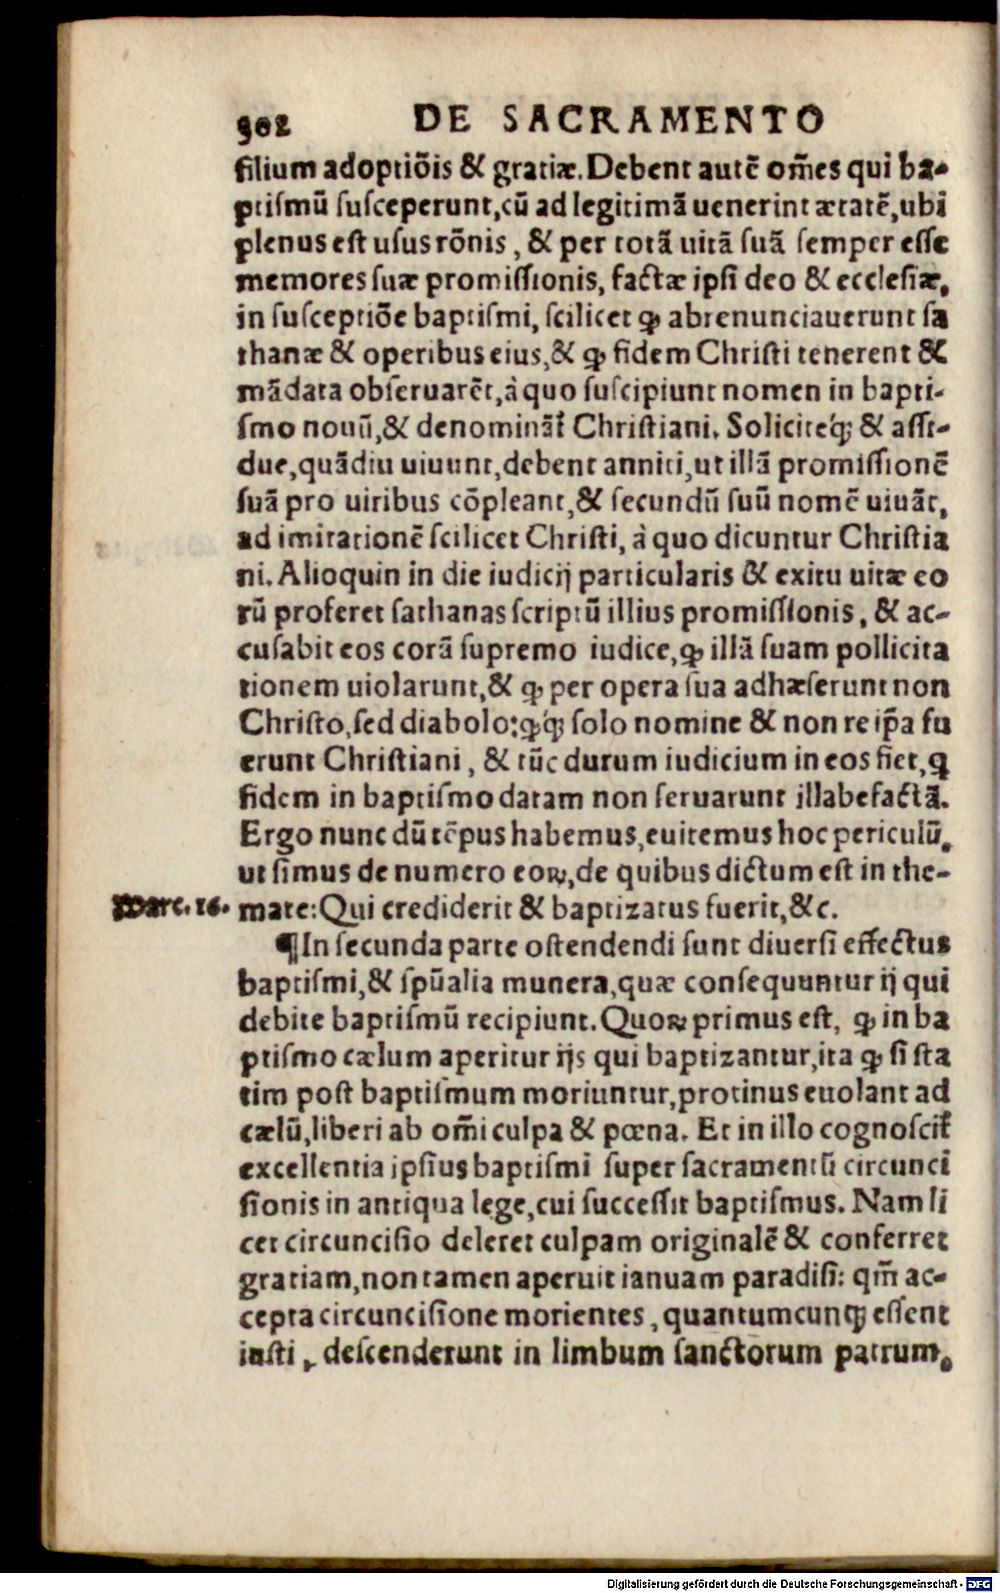 902 DE SACRAMENTO
filium adoptiõis & gratiæ. Debent autẽ om̃es qui ba-
ptiſmũ ſuſceperunt, cũ ad legitimã uenerint ætatẽ, ubi
plenus eſt uſus rõnis, & per totã uitã ſuã ſemper eſſe
memores ſuæ promiſſionis, factæ ipſi deo & eccleſiæ,
in ſuſceptiõe baptiſmi, ſcilicet ꝙ abrenunciauerunt ſa
thanæ & operibus eius, & ꝙ fidem Chriſti tenerent &
mãdata obſeruarẽt, à quo ſuſcipiunt nomen in bapti-
ſmo nouũ, & denominãt᷑ Chriſtiani. Soliciteq́; & aſſi-
due, quãdiu uiuunt, debent anniti, ut illã promiſſionẽ
ſuã pro uiribus cõpleant, & ſecundũ ſuũ nomẽ uiuãt,
ad imitationẽ ſcilicet Chriſti, à quo dicuntur Chriſtia
ni. Alioquin in die iudicij particularis & exitu uitæ eo
rũ proferet ſathanas ſcriptũ illius promiſſionis, & ac-
cuſabit eos corã ſupremo iudice, ꝙ illã ſuam pollicita
tionem uiolarunt, & ꝙ per opera ſua adhæſerunt non
Chriſto, ſed diabolo: ꝙq́; ſolo nomine & non re ip̃a fu
erunt Chriſtiani, & tũc durum iudicium in eos fiet, ꝗ
fidem in baptiſmo datam non ſeruarunt illabefactã.
Ergo nunc dũ tẽpus habemus, euitemus hoc periculũ,
ut ſimus de numero eoꝝ, de quibus dictum eſt in the-
Marc. 16. mate: Qui crediderit & baptizatus fuerit, &c.
¶In ſecunda parte oſtendendi ſunt diuerſi effectus
baptiſmi, & ſpũalia munera, quæ conſequuntur ij qui
debite baptiſmũ recipiunt. Quoꝝ primus eſt, ꝙ in ba
ptiſmo cælum aperitur ijs qui baptizantur, ita ꝙ ſi ſta
tim poſt baptiſmum moriuntur, protinus euolant ad
cælũ, liberi ab om̃i culpa & pœna. Et in illo cognoſcit᷑
excellentia ipſius baptiſmi ſuper ſacramentũ circunci
ſionis in antiqua lege, cui ſucceſſit baptiſmus. Nam li
cet circunciſio deleret culpam originalẽ & conferret
gratiam, non tamen aperuit ianuam paradiſi: qm̃ ac-
cepta circunciſione morientes, quantumcunq; eſſent
iuſti, deſcenderunt in limbum ſanctorum patrum,
Digitalisierung gefördert durch die Deutsche Forschungsgemeinschaft - DFG